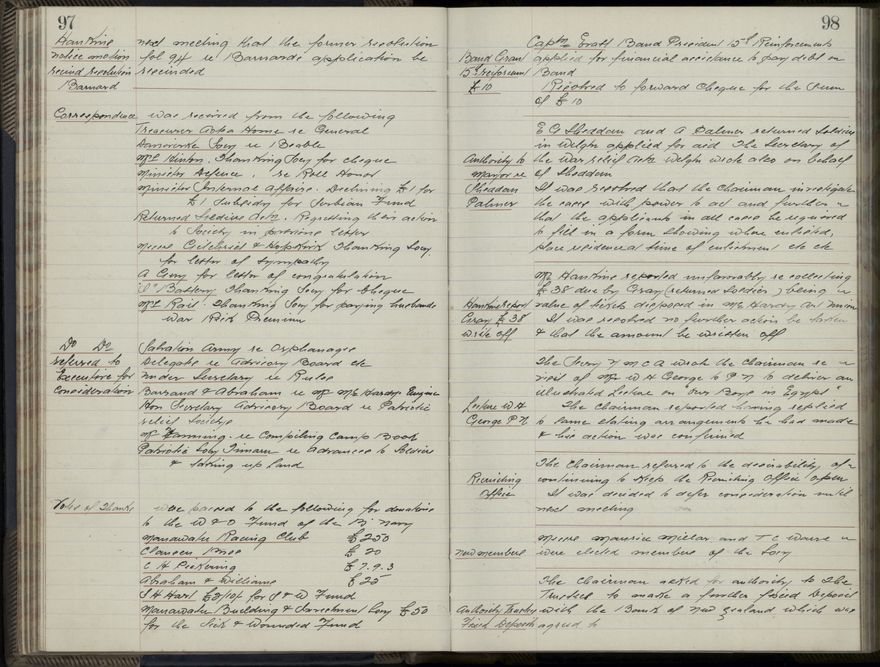 97
Hankins next meeting that the former resolution
notice motion fol 94 re Barnards application be
rescind resolution rescinded
Barnard
Correspondence was received from the following
Treasurer Aotea Home re General
Dannevirke Socy re
Mrs Thanking Socy for cheque
Minister Defence. re Roll Honor
Minister Internal Affairs. Declining £1 for
£1 Subsidy for Serbian Fund
Returned Soldiers Assn. Regretting their action
to Society in previous letter
Messrs Gilchrist & Hopkirk Thanking Socy.
for letter of sympathy
A for letter of congratulation
Battery Thanking Socy for cheque
Mrs Rait. Thanking Socy for paying husbands
War Risk Premium
Do Do Salvation Army re Orphanages
referred to Delegate re Advisory Board etc
Executive for Under Secretary re Rules
Consideration Barraud & Abraham re Mr McHardys Engine
Hon Secretary Advisory Board re Patriotic
relief Societys
Mr Fanning re Compiling Camp Book
Patriotic Socy re Advances to Soldiers
& taking up land
Votes of Thanks were passed to the following for donations
to the W & D Fund of the Br Navy
Manawatu Racing Club £250
Clausen Bros £20
C H Pickering £7.9.3
Abraham & Williams £25
S H Hart £3/10/- for S & W Fund
Manawatu Building & Investment Coy £50
for the Sick & Wounded Fund
98
Captn Bratt Band President 15th Reinforcements
Band Grant applied for financial assistance to pay debt on
15th reinforcement Band
£10 Resolved to forward cheque for the sum
of £10
E G Sheddan and A Palmer returned soldiers
in Welgtn applied for aid. The Secretary of
Authority to the War relief Assn Welgtn wrote also on behalf
Mayor re of Sheddan
Sheddan It was resolved that the Chairman investigate
Palmer the cases with power to act and further
that the applicants in all cases be required
to fill in a form showing when enlisted,
place residence at time of enlistment etc etc
Mr Hankins reported unfavorably re collecting
£38 due by Gray (returned Soldier) being
Hankins Report value of tickets disposed in McHardy Art Union
Gray £38 It was resolved no further action be taken
write off & that the amount be written off
The Secry Y M C A wrote the Chairman re
visit of Mr W H George to P N to deliver an
illustrated Lecture on "Our Boys in Egypt"
Lecture W H The Chairman reported having replied
George P N to same stating arrangements he had made
& his action was confirmed
The Chairman referred to the desirability of
Recruiting continuing to keep the Recruiting Office open
Office It was decided to defer consideration until
next meeting
Messrs Maurice Millar and T C
New members were elected members of the Socy
The Chairman asked for authority to the
Trustees to make a further fixed Deposit
Authority Trustees with the Bank of New Zealand which was
Fixed Deposit agreed to